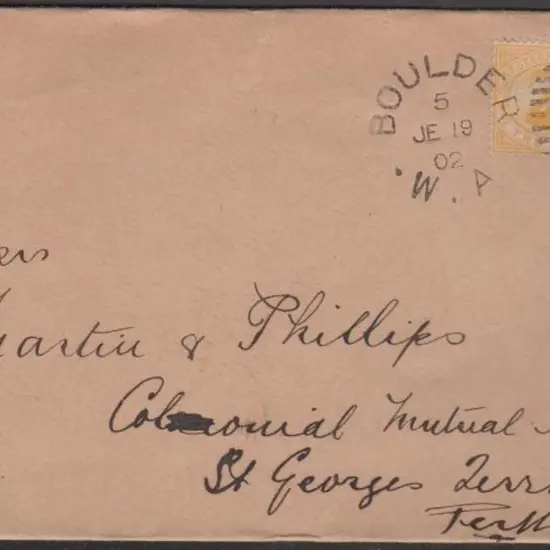 BOULDER
5
JE 19
02
W.A
ers
artin & Phillips
Colonial Mutual
St Georges Terr
Perth